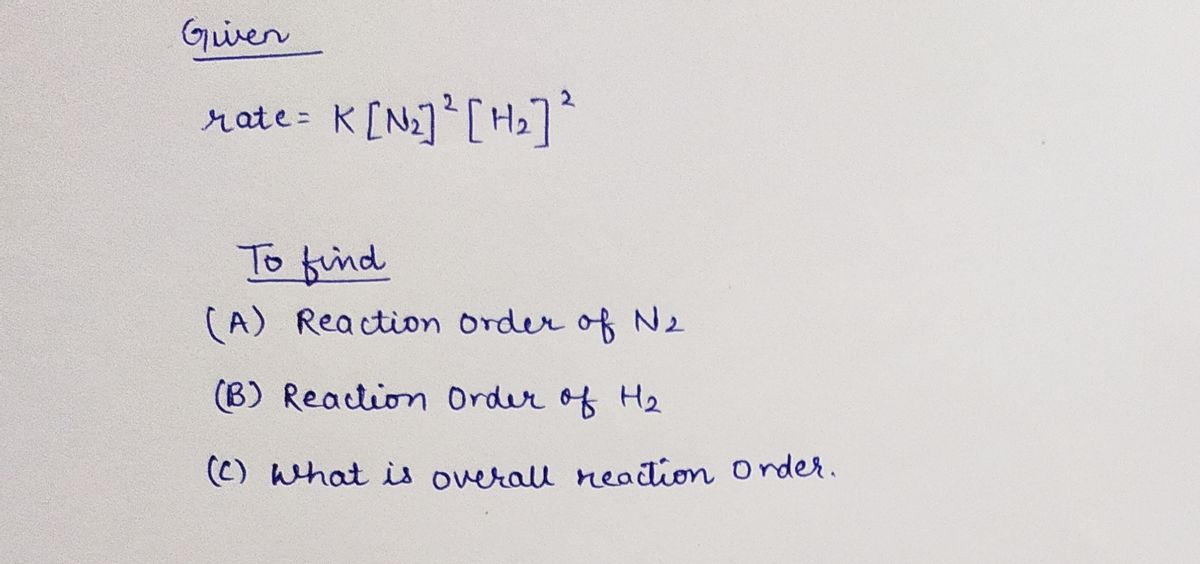 Given
rate= K[N₂]²[H₂]²
To find
(A) Reaction order of N₂
(B) Reaction Order of H₂
(C) What is overall reaction Order.